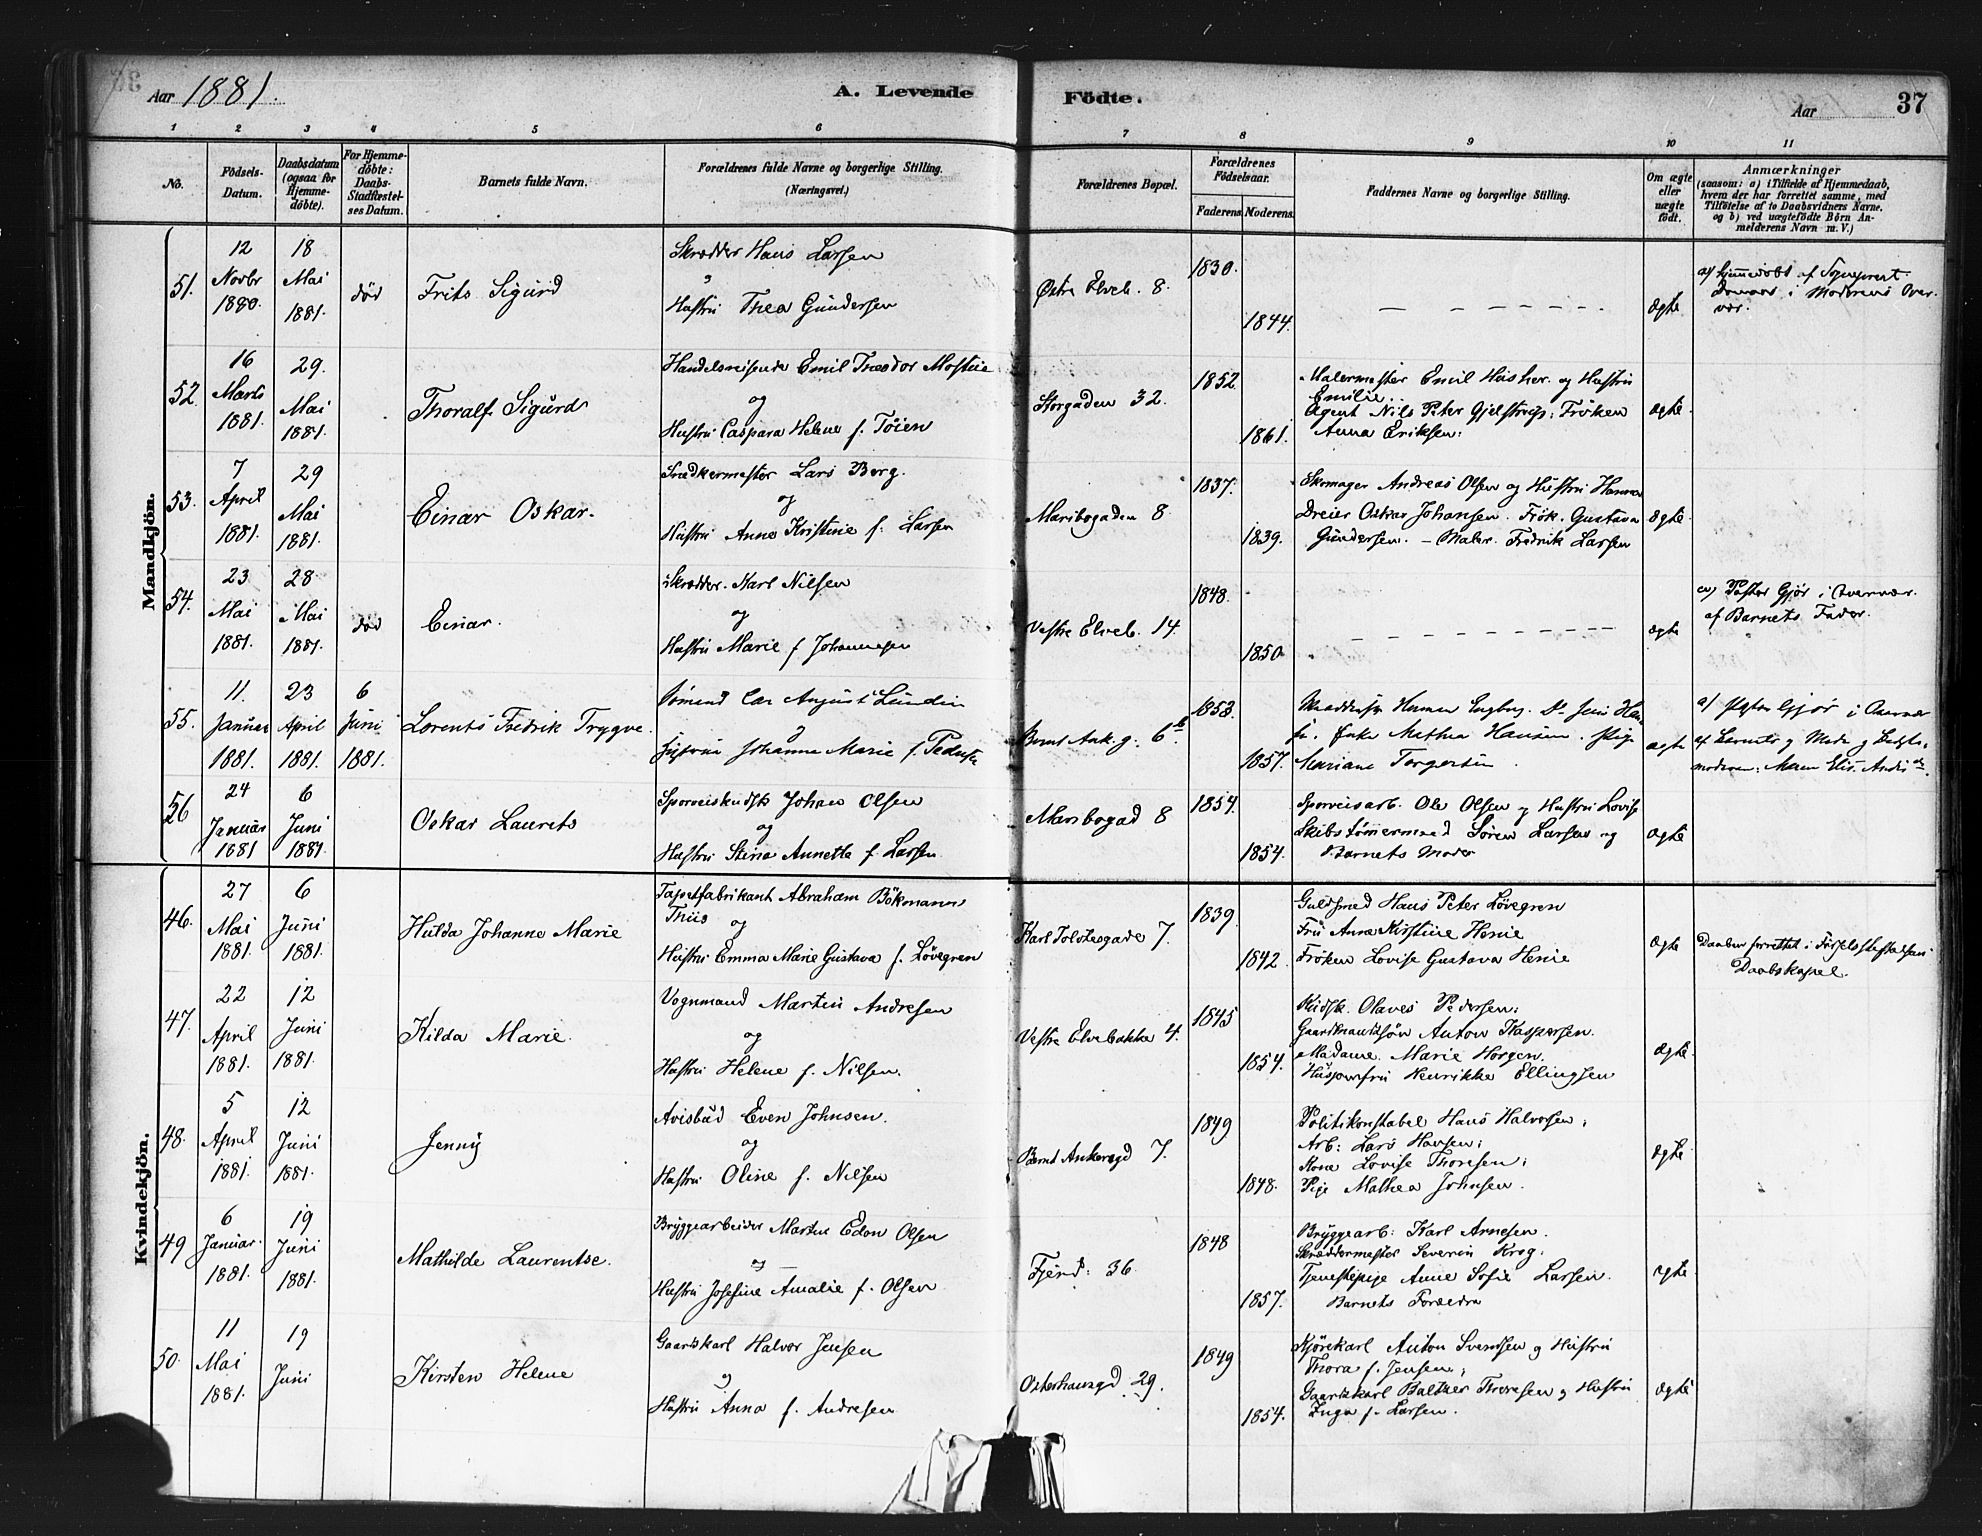 Aar 1881.
A. Levende
Födte.
Aar
37
1 2 3 4 5 6 7 8 9 10 11
No.
Födsels-
Datum.
Daabsdatum
(ogsaa for
Hjemme-
döbte).
For Hjemme-
döbte:
Daabs-
Stadfæstel-
ses Datum.
Barnets fulde Navn.
Forældrenes fulde Navne og borgerlige Stilling.
(Næringsvei.)
Forældrenes Bopæl.
Forældrenes
Födselsaar.
Faderens. Moderens.
Faddernes Navne og borgerlige Stilling.
Om ægte
eller
uægte
födt.
Anmærkninger
(saasom: a) i Tilfælde af Hjemmedaab,
hvem der har forrettet samme, med
Tilföielse af to Daabsvidners Navne,
og b) ved uægtefödte Börn An-
melderens Navn m. V.)
Mandkjön.
51.
12
Novbr
1880.
18
Mai
1881.
död
Frits Sigurd
Skrædder Hans Larsen
Hustru Thea Gundersen
Østre Elveb. 8.
1830.
1844.
ægte
a) hjemmedöbt af Sognepræst
i Moderens Over-
vær.
52.
16
Marts
1881.
29.
Mai
1881.
Thoralf Sigurd
Handelsreisende Emil Theodor
og
Hustru Caspara Helene f. Töien
Storgaden 32.
1852.
1861.
Malermester Emil og Hustru
Emilie.
Agent Nils Peter Gjelstrup: Fröken
Anna Eriksen:
ægte.
53.
7
April
1881.
29
Mai
1881.
Einar Oskar.
Snedkermester Lars Berg.
og
Hustru Anne Kristine f. Larsen
Maribogaden 8
1837.
1839.
Skomager Andreas Olsen og Hustru Hanna
Dreier Oskar Johansen. Frök. Gustava
Gundersen. – Maler. Fredrik Larsen
ægte.
54.
23
Mai
1881.
28
Mai
1881.
död
Einar.
Skrædder. Karl Nilsen
og
Hustru Marie f. Johannesen
Vestre Elveb. 14.
1848.
1850.
ægte
a) Pastor Gjör i Overvær
af Barnets Fader.
55.
11.
Januar
1881.
23
April
1881.
6
Juni
1881.
Lorents Fredrik Trygve.
Sömand Carl August Lundin
Hustru Johanne Marie f.
Bernt Ank.g. 6b.
1853.
1857.
Mathea Hansen. Pige
Mariane Torgersen
ægte
a) Pastor Gjör i Overvær
af Barnets
moderen: Maren Elis.
56
24
Januar
1881
6
Juni
1881.
Oskar Laurets
Sporveiskudsk Johan Olsen
og
Hustru Stina Annette f. Larsen
Maribogad 8
1854.
1854.
Sporveisarb. Ole Olsen og Hustru Lovise
Skibstömmermand Sören Larsen og
Barnets Moder
ægte
Kvindekjön.
46.
27
Mai
1881.
6
Juni
1881.
Hulda Johanne Marie
Tapetfabrikant Abraham Bökmann
Thiis
og
Hustru Emma Marie Gustava f. Lövegren
Karl Tolstesgade 7.
1839.
1842.
Guldsmed Hans Peter Lövegren
Fru Anne Kirstine Henie
Fröken Lovise Gustava Henie
ægte
Daaben forrettet i Födselsstiftelsens
Daabskapel.
47.
22
April
1881.
12
Juni
1881.
Kilda Marie.
Vognmand Martin Andresen
og
Hustru Helene f. Nilsen.
Vestre Elvebakke 4.
1845
1854.
Kudsk. Olaves Pedersen;
Gaardmandssön Anton Kaspersen.
Madame. Marie Horgen.
Husjomfru Henrikke Ellingsen
ægte.
48.
5
April
1881.
12
Juni
1881.
Jenny
Avisbud Even Johnsen.
og
Hustru Oline f. Nilsen
Bernt Ankersgd 7.
1849
1848.
Politikonstabel Hans Halvorsen;
Arb: Lars Hansen;
Kone Lovise Thoresen;
Pige Mathea Johnsen.
ægte
49
6
Januar.
1881.
19
Juni
1881.
Mathilde Laurentse.
Bryggearbeider Martin Edon Olsen
og
Hustru Josefine Amalie f. Olsen
Fjerd: 36.
1848
1857.
Bryggearb: Karl Arnesen.
Skræddermester Severin Krog;
Tjenestepige Anne Sofie Larsen.
Barnets Forældre
ægte
50.
11
Mai
1881.
19
Juni
Kirsten Helene
Gaardskarl Halvor Jensen
og
Hustru Anna f. Andresen
Osterhausgd 29.
1849
1854.
Kjörekarl Anton Svendsen og Hustru
Thora f. Jensen;
Gaardskarl Baltzer Thoresen og Hustru
Inga f. Larsen.
ægte